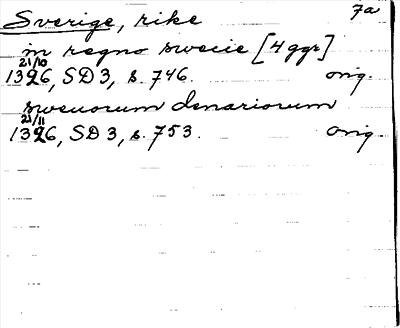 Sverige, rike 7a
in regno swecie [4 ggr]
21/10
1326, SD 3, s. 746. orig.
swenorum denariorum
21/11
1326, SD 3, s. 753. orig.